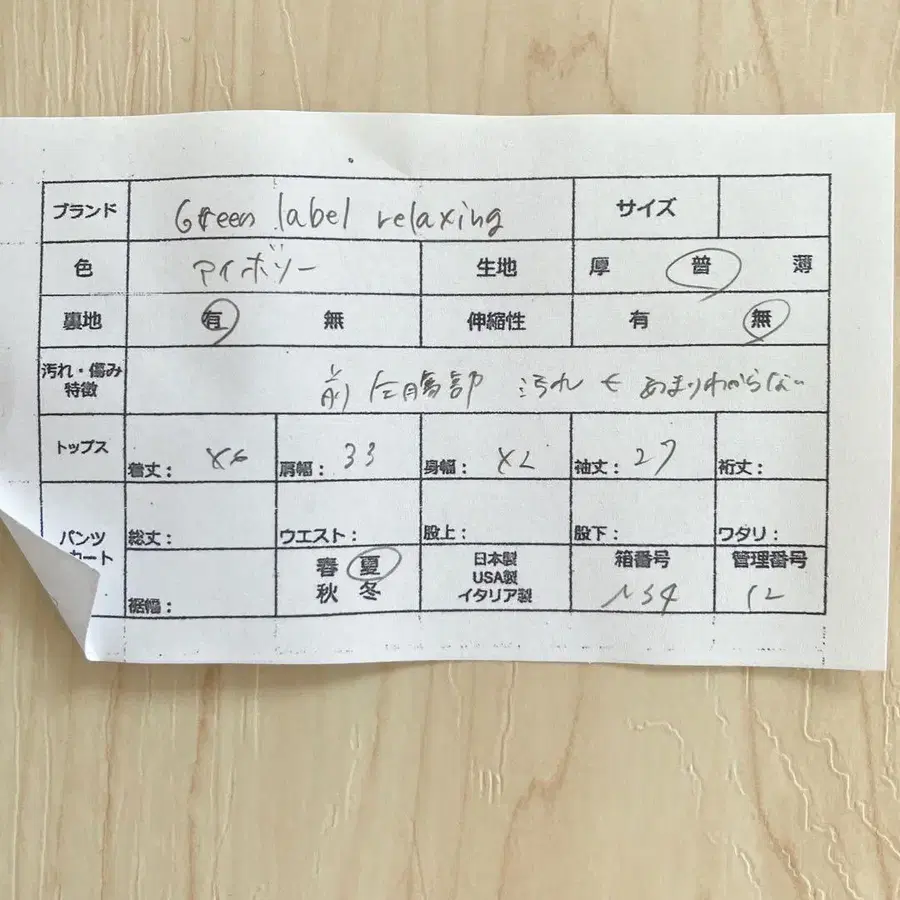 ブランド Green label relaxing サイズ
色 アイボリー 生地 厚 普 薄
裏地 有 無 伸縮性 有 無
汚れ・傷み 特徴 前 左胸部 汚れ も あまりわからない
トップス 着丈: 肩幅: 33 身幅: 袖丈: 27 裄丈:
パンツ 総丈: ウエスト: 股上: 股下: ワタリ:
カート 裾幅: 春 夏 秋 冬 日本製 USA製 イタリア製 箱番号 N34 管理番号 12